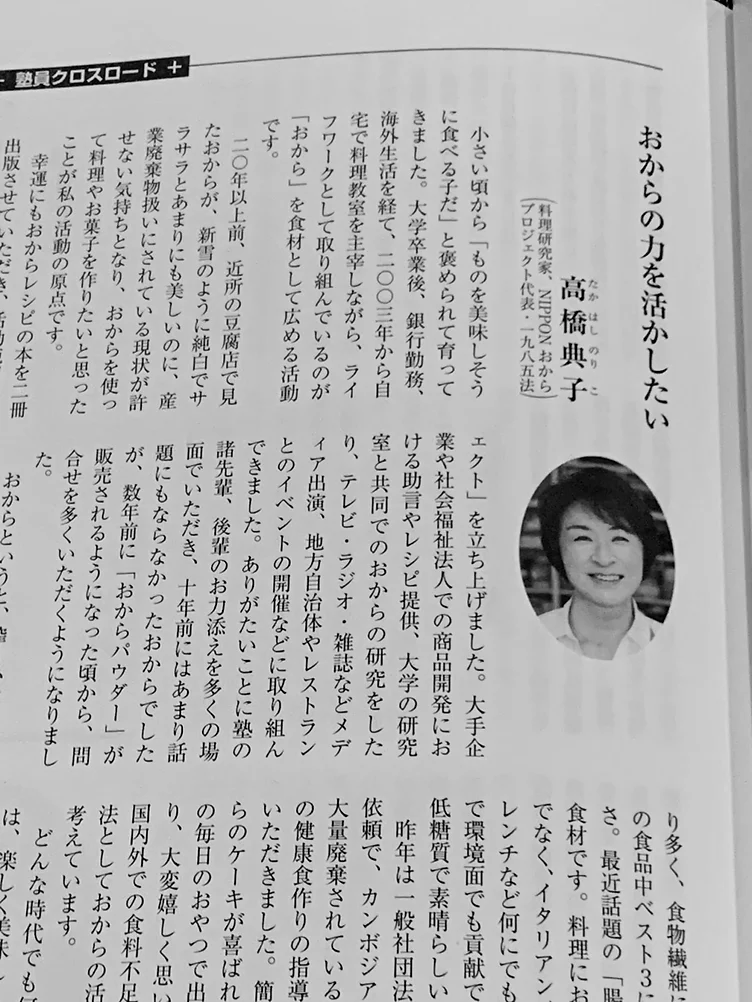 塾員クロスロード +
おからの力を活かしたい
(料理研究家、NIPPON おから
プロジェクト代表・一九八五法)
高橋典子
たかはしのりこ
小さい頃から「ものを美味しそう
に食べる子だ」と褒められて育って
きました。大学卒業後、銀行勤務、
海外生活を経て、二〇〇三年から自
宅で料理教室を主宰しながら、ライ
フワークとして取り組んでいるのが
「おから」を食材として広める活動
です。
二〇年以上前、近所の豆腐店で見
たおからが、新雪のように純白でサ
ラサラとあまりにも美しいのに、産
業廃棄物扱いにされている現状が許
せない気持ちとなり、おからを使っ
て料理やお菓子を作りたいと思った
ことが私の活動の原点です。
幸運にもおからレシピの本を二冊
出版させていただき、活動
ェクト」を立ち上げました。大手企
業や社会福祉法人での商品開発にお
ける助言やレシピ提供、大学の研究
室と共同でのおからの研究をした
り、テレビ・ラジオ・雑誌などメデ
ィア出演、地方自治体やレストラン
とのイベントの開催などに取り組ん
できました。ありがたいことに塾の
諸先輩、後輩のお力添えを多くの場
面でいただき、十年前にはあまり話
題にもならなかったおからでした
が、数年前に「おからパウダー」が
販売されるようになった頃から、問
合せを多くいただくようになりまし
た。
おからというと、
り多く、食物繊維
の食品中ベスト3に
さ。最近話題の「腸
食材です。料理にお
でなく、イタリアン
レンチなど何にでも
で環境面でも貢献で
低糖質で素晴らしい
昨年は一般社団法
依頼で、カンボジア
大量廃棄されている
の健康食作りの指導
いただきました。簡
らのケーキが喜ばれ
の毎日のおやつで出
り、大変嬉しく思い
国内外での食料不足
法としておからの活
考えています。
どんな時代でも
は、楽しく美味し